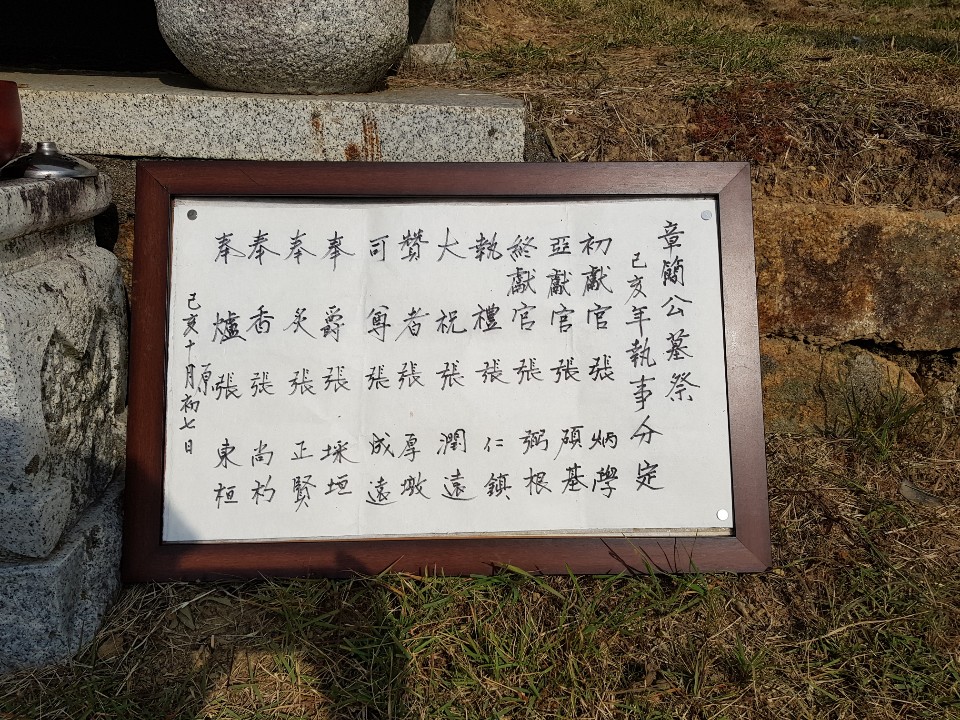 章簡公墓祭
己亥年執事分定
初獻官 張 炳學
亞獻官 張 碩基
終獻官 張 弼根
執禮 張 仁鎮
大祝 張 潤遠
贊者 張 厚墩
司尊 張 成遠
奉爵 張 埰垣
奉炙 張 正賢
奉香 張 尚杓
奉爐 張 東桓
己亥十月初七日